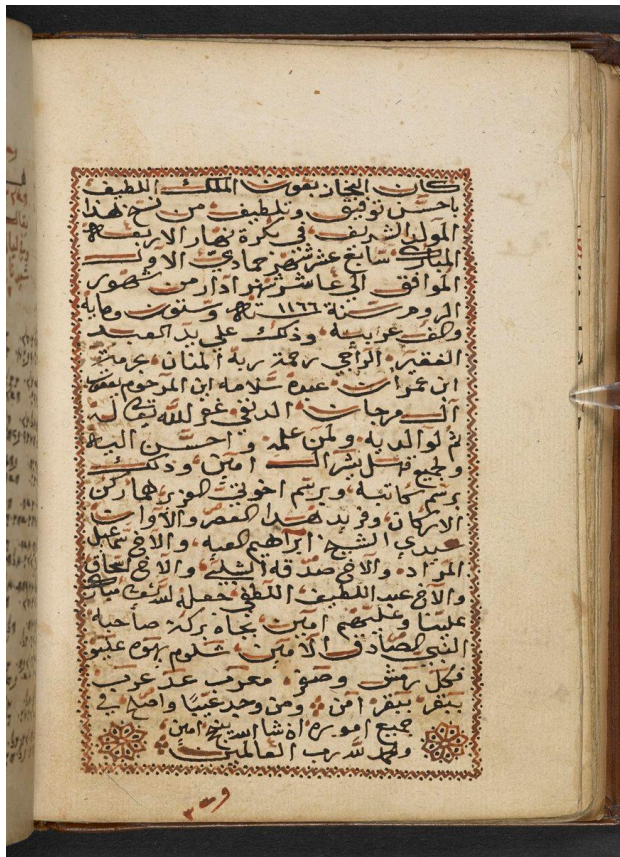 كان النجاز بعون الملك اللطيف
باحسن توفيق وتلطيف من نسخ هذا
المولد الشريف في بكرة نهار الاربعه
المبارك سابع عشر شهر جمادي الاول
الموافق الي عاشر شهر اذار من شهور
الروم سنة ١١٦٦ ستة وستون ومايه
والف عربيه وذلك علي يد العبد
الفقير الراجي رحمة ربه المنان
ابن عمران عبده سلامه ابن المرحوم يعقوب
ال مرجان الدنفي غفر الله تعالى له
ثم لوالديه ولمن علمه واحسن اليه
ولجميع اسرال امين وذلك
برسم كاتبه وبرسم اخوتي العزيز
الاركان وفريد هذا العصر والاوان
سيدي الشيخ ابراهيم العيه والاخ
والاخ صدقه الشلبي والاخ اسحاق
والاخ عبد اللطيف اللطفي جعله الله تعالى مبارك
علينا وعليهم امين بجاه بركة صاحبه
النبي الصادق الامين شلوم يهوه عليو
فكل رمش وصفر معرب عد عرب
ببقر ببقر امن ومن وجد عيبا واصلح في
جميع اموره ان شا الله ينجح امين
والحمد لله رب العالمين